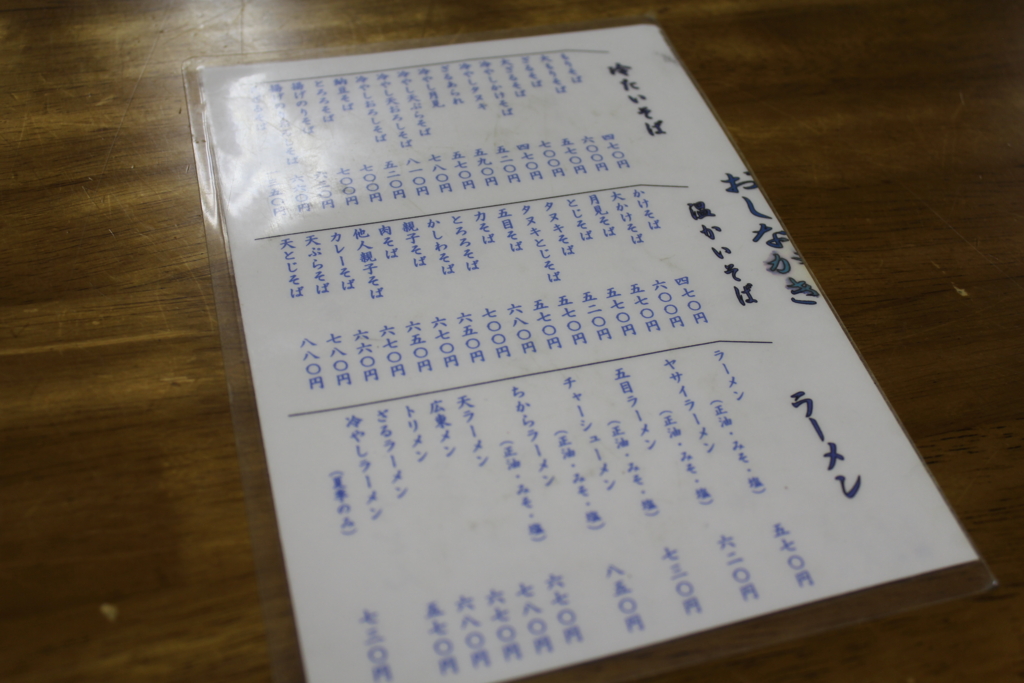 おしながき
冷たいそば
もりそば 四七〇円
大もりそば 六〇〇円
ざるそば 五七〇円
大ざるそば 七〇〇円
冷やしかけそば 四七〇円
冷やしタヌキ 五二〇円
ざるあられ 五九〇円
冷やし月見 五七〇円
冷やし天ぷらそば 七八〇円
冷やし天おろしそば 八一〇円
冷やしおろしそば 五二〇円
納豆そば 七〇〇円
とろろそば 七〇〇円
揚げのりそば
温かいそば
かけそば 四七〇円
大かけそば 六〇〇円
月見そば 五七〇円
とじそば 五七〇円
タヌキそば 五二〇円
タヌキとじそば 五七〇円
五目そば 五七〇円
力そば 六八〇円
とろろそば 七〇〇円
かしわそば 六五〇円
親子そば 六七〇円
肉そば 六五〇円
他人親子そば 六七〇円
カレーそば 六六〇円
天ぷらそば 七八〇円
天とじそば 八八〇円
ラーメン
ラーメン (正油・みそ・塩) 五七〇円
ヤサイラーメン (正油・みそ・塩) 六二〇円
五目ラーメン (正油・みそ・塩) 七三〇円
チャーシューメン (正油・みそ・塩) 八五〇円
ちからラーメン (正油・みそ・塩) 六七〇円
天ラーメン 七八〇円
広東メン 六七〇円
トリメン 六八〇円
ざるラーメン 五七〇円
冷やしラーメン (夏季のみ) 七三〇円